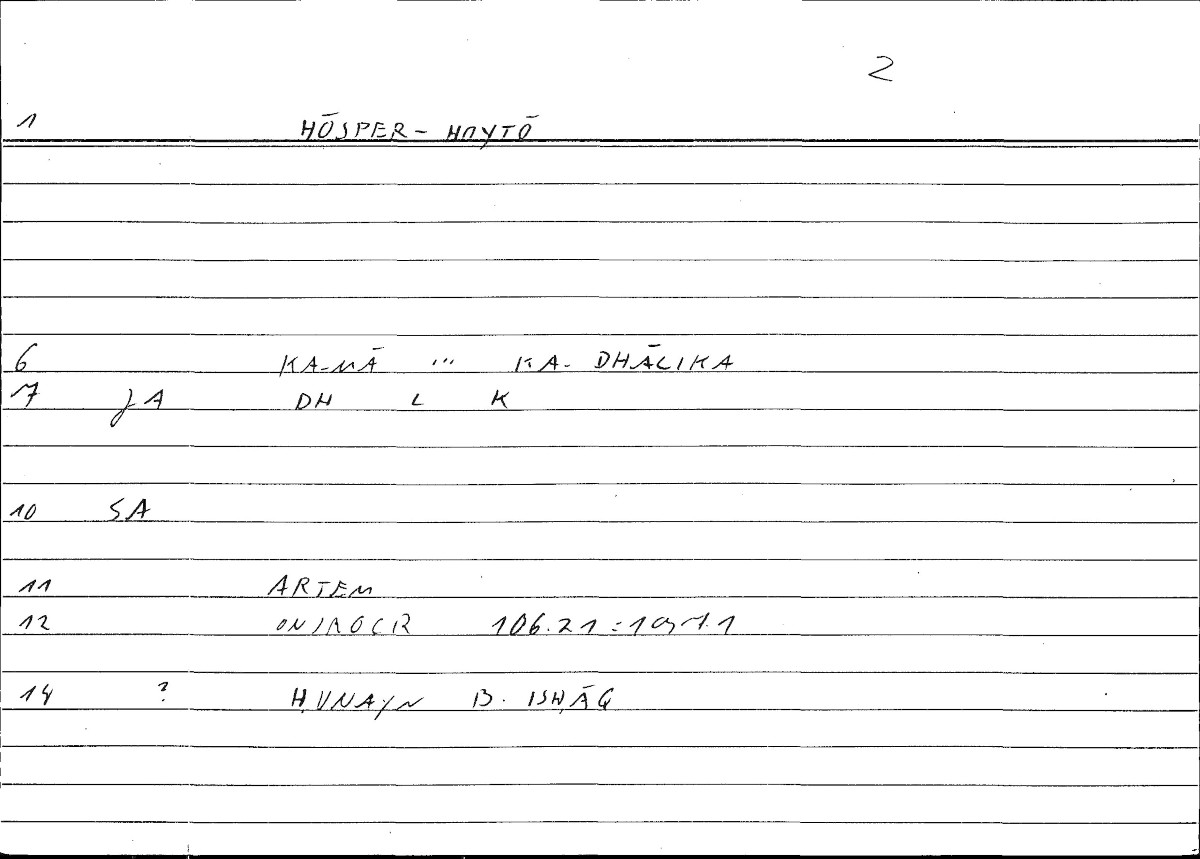 2
1 HŌSPER – HOYTŌ
6 KA-MĀ ... KA-DHĀLIKA
7 JA DH L K
10 SA
11 ARTEM
12 ONIROCR 106.21 =
14 ? ḤUNAYN B. ISḤĀQ